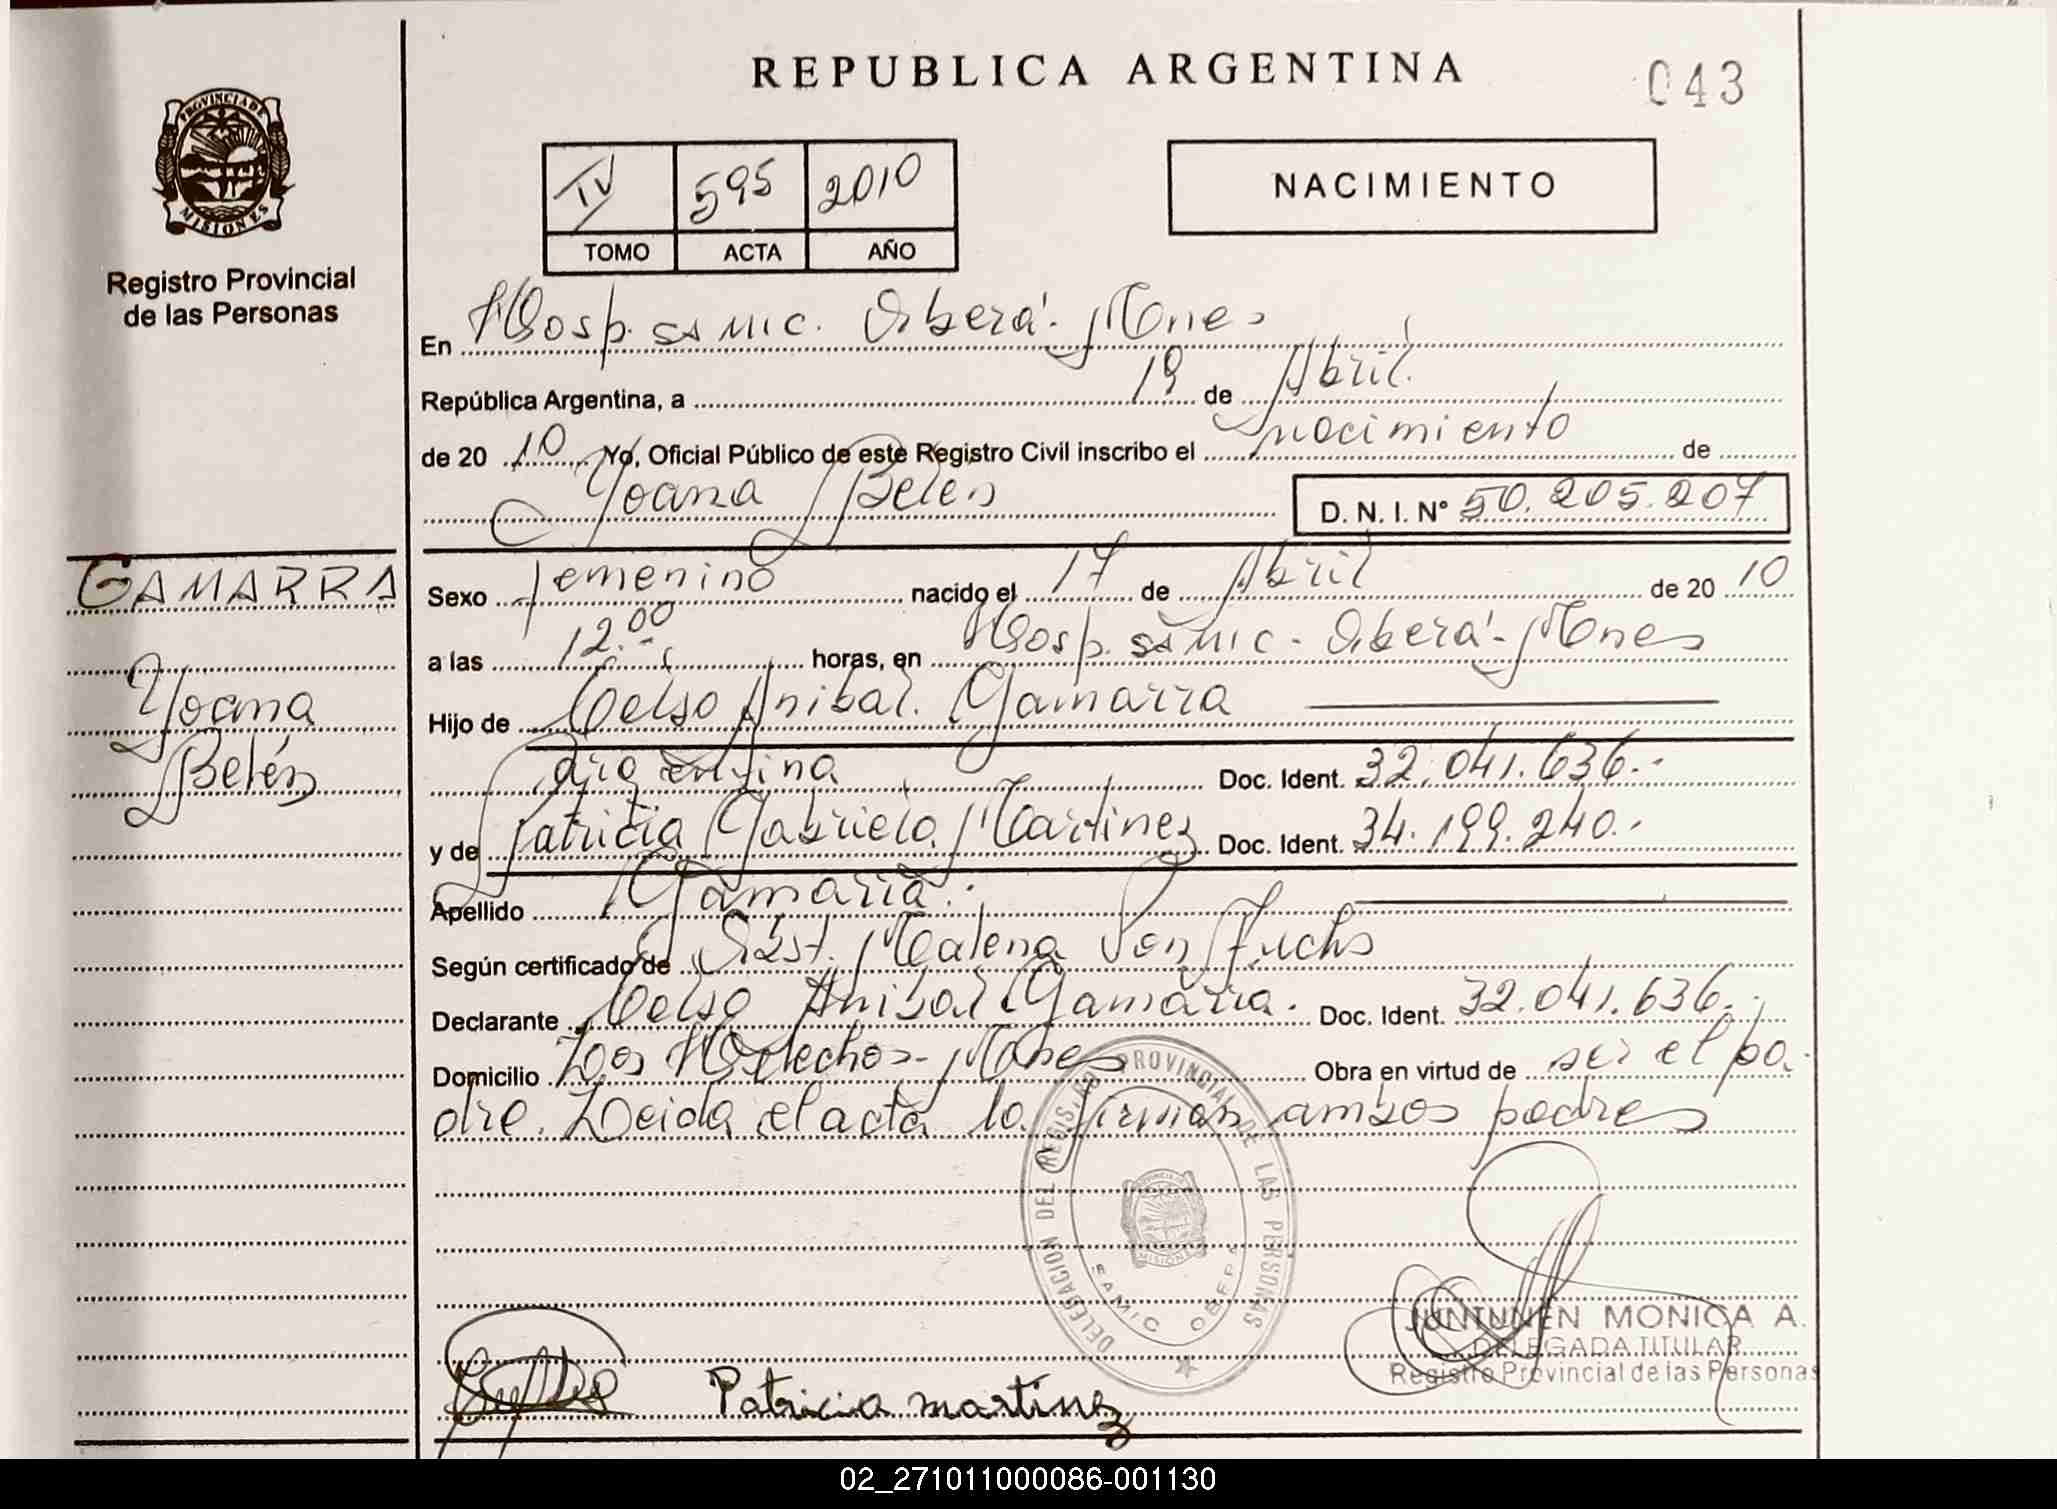 REPUBLICA ARGENTINA
043
PROVINCIA DE
MISIONES
Registro Provincial
de las Personas
IV 595 2010
TOMO ACTA AÑO
NACIMIENTO
En Hosp. SAMIC. Oberá - Mnes
República Argentina, a 19 de Abril
de 20 10 Yo, Oficial Público de este Registro Civil inscribo el nacimiento de
Yoana Belén D. N. I. Nº 50.205.207
GAMARRA
Yoana
Belén
Sexo femenino nacido el 17 de Abril de 20 10
a las 12.00 horas, en Hosp. SAMIC - Oberá - Mnes
Hijo de Celso Anibal Gamarra
argentina Doc. Ident. 32.041.636.-
y de Patricia Gabriela Martinez Doc. Ident. 34.199.240.-
Apellido Gamarra.
Según certificado de Obst. Malena Von Fuchs
Declarante Celso Anibal Gamarra. Doc. Ident. 32.041.636.-
Domicilio Los Helechos - Mnes Obra en virtud de ser el pa-
dre. Leida el acta la firman ambos padres
DELEGACION DEL REGISTRO PROVINCIAL DE LAS PERSONAS
SAMIC OBERA
MISIONES
JUNTUNEN MONICA A.
DELEGADA TITULAR
Registro Provincial de las Personas
Patricia martinez
02_271011000086-001130